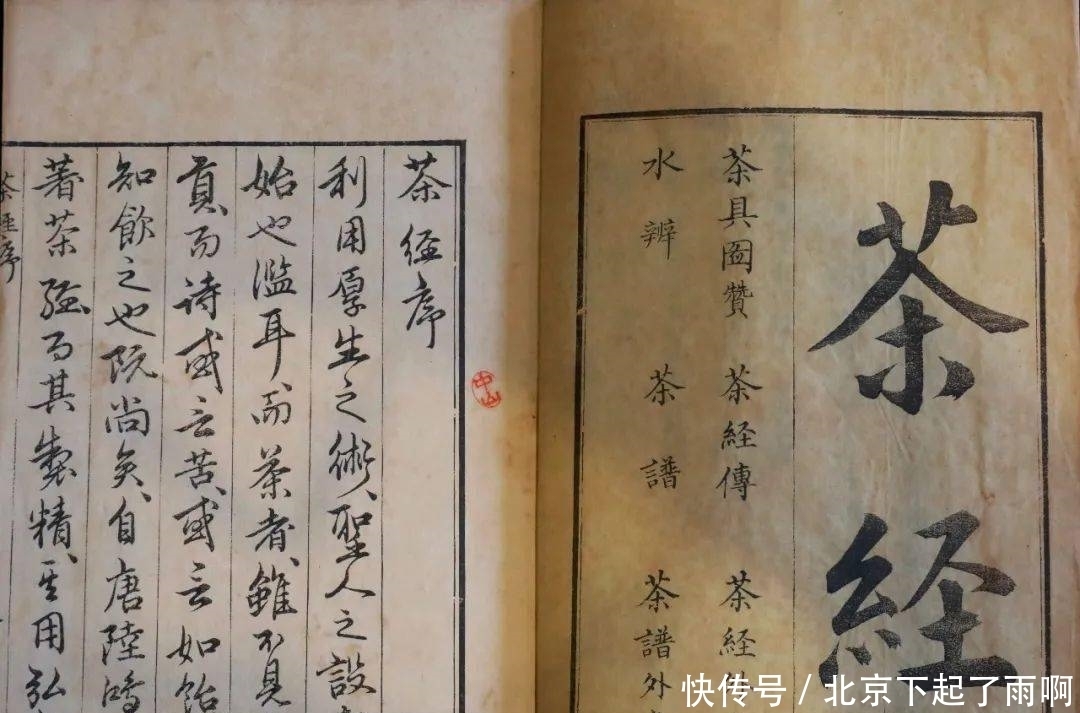 茶経
茶具圖贊 茶経傳 茶経
水辨 茶譜 茶譜外
茶経序
利用厚生之術、聖人之設
始也濫耳、而茶者、雖不見
貢、而詩或云苦、或云如飴
知飲之也既尚矣、自唐陸鴻
著茶経而其製精、其用弘
茶経序
中山
快传号/北京下起了雨啊